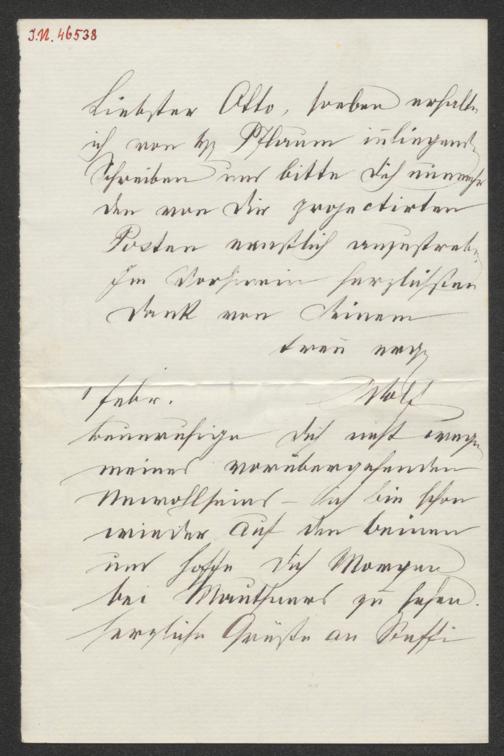 J.N. 46538
Liebster Otto, soeben erhalte
ich von Pflaum inliegendes
Schreiben und bitte Dich nunmehr
den von Dir projectirten
Posten ernstlich anzustreben.
Im Vorhinein herzlichsten
Dank von Deinem
treu erg.
1 Febr. Wolf
beunruhige Dich nicht wegen
meines vorübergehenden
Unwohlseins – ich bin schon
wieder auf den Beinen
und hoffe Dich Morgen
bei Mauthners zu sehen.
herzliche Grüße an Steffi